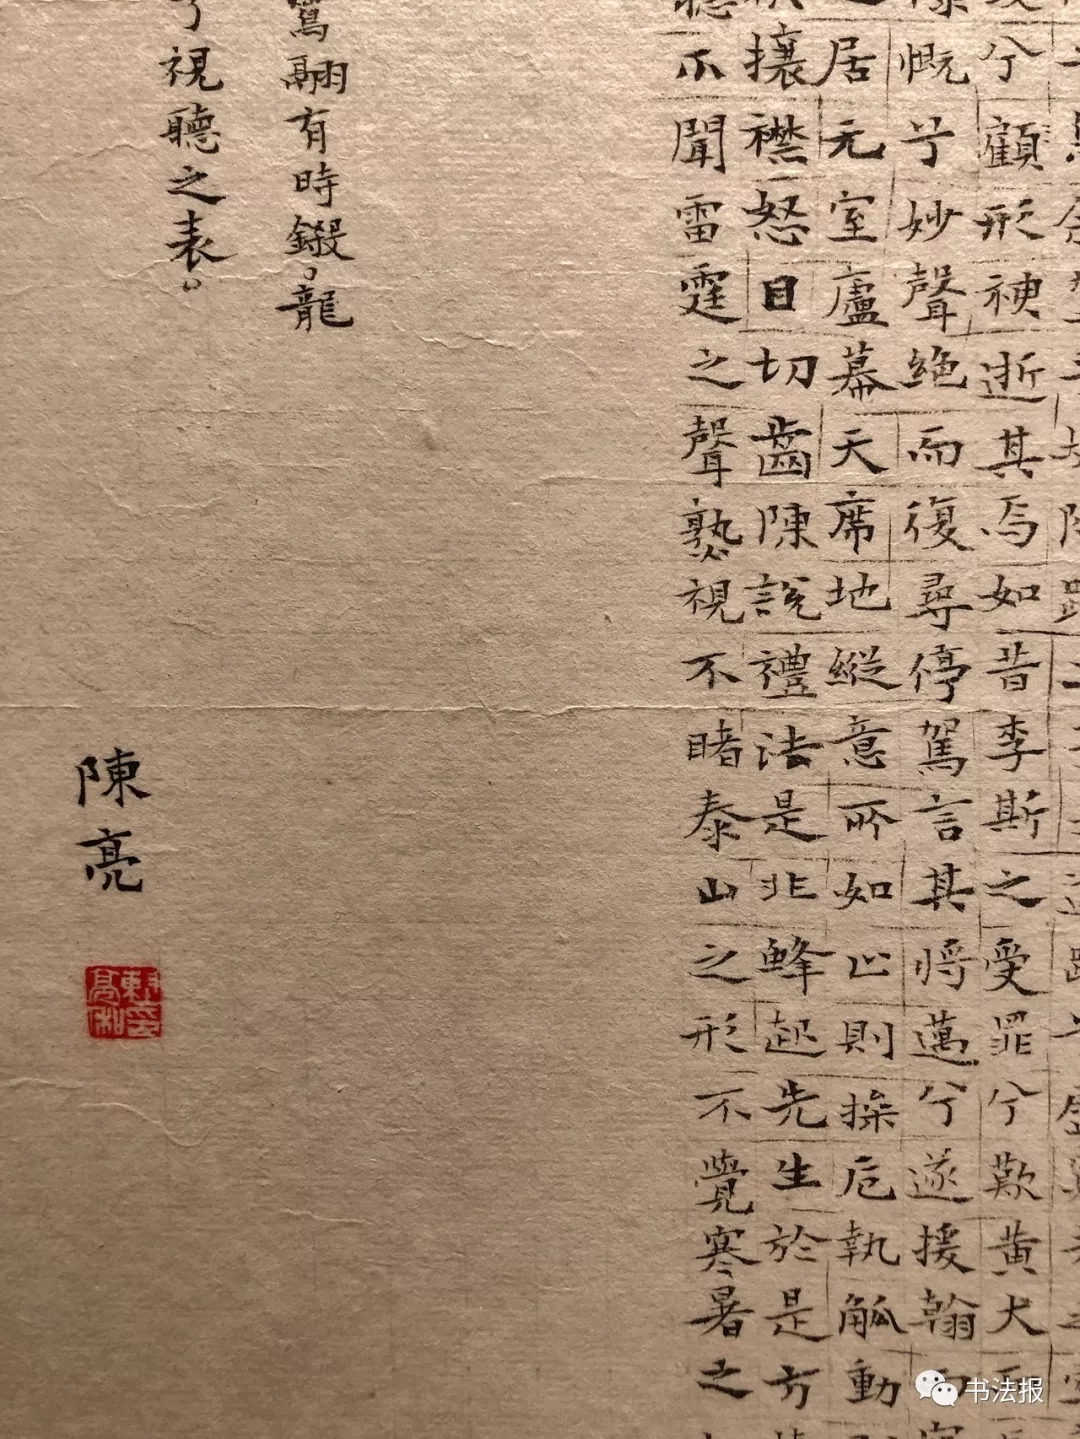 兮顧形神逝其焉如昔李斯之受罪兮歎黄犬
慨兮妙聲絶而復尋停駕言其將邁兮遂援翰
居元室廬幕天席地縱意所如止則操卮執觚動
攘襟怒目切齒陳說禮法是非蜂起先生於是方
不聞雷霆之聲熟視不睹泰山之形不覺寒暑之
鸞翮有時鎩。龍
視聽之表。
陳亮
书法报